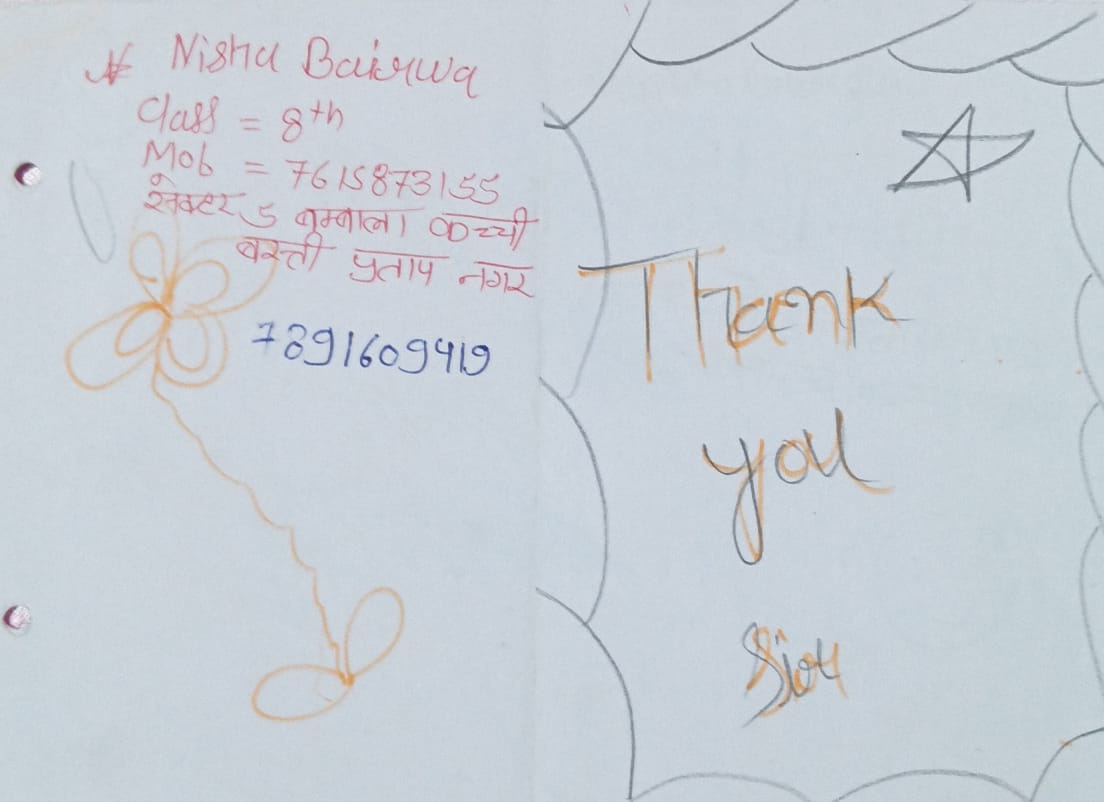 Nisha Bairwa
Class = 8th
Mob = 7615873155
सेक्टर 5 कुम्बाला कच्ची
बस्ती प्रताप नगर
7891609419
Thank
you
Sir